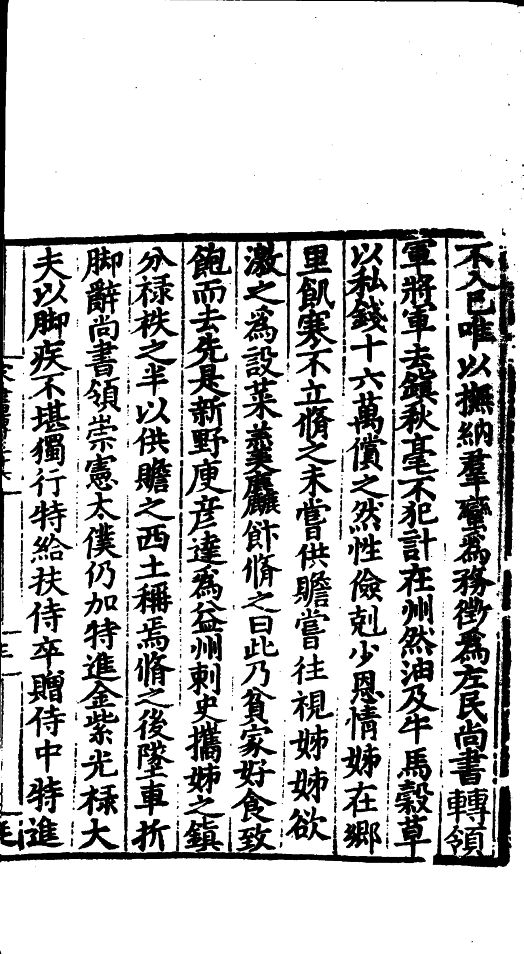 不入己唯以撫納羣蠻爲務徴爲左民尚書轉領
軍將軍去鎮秋毫不犯計在州然油及牛馬穀草
以私錢十六萬償之然性儉剋少恩情姊在鄉
里飢寒不立脩之未嘗供贍嘗往視姊姊欲
激之爲設菜羮麤飰脩之曰此乃貧家好食致
飽而去先是新野庾彦達爲益州刺史攜姊之鎮
分禄秩之半以供贍之西土稱焉脩之後墜車折
脚辭尚書領崇憲太僕仍加特進金紫光禄大
夫以脚疾不堪獨行特給扶侍卒贈侍中特進